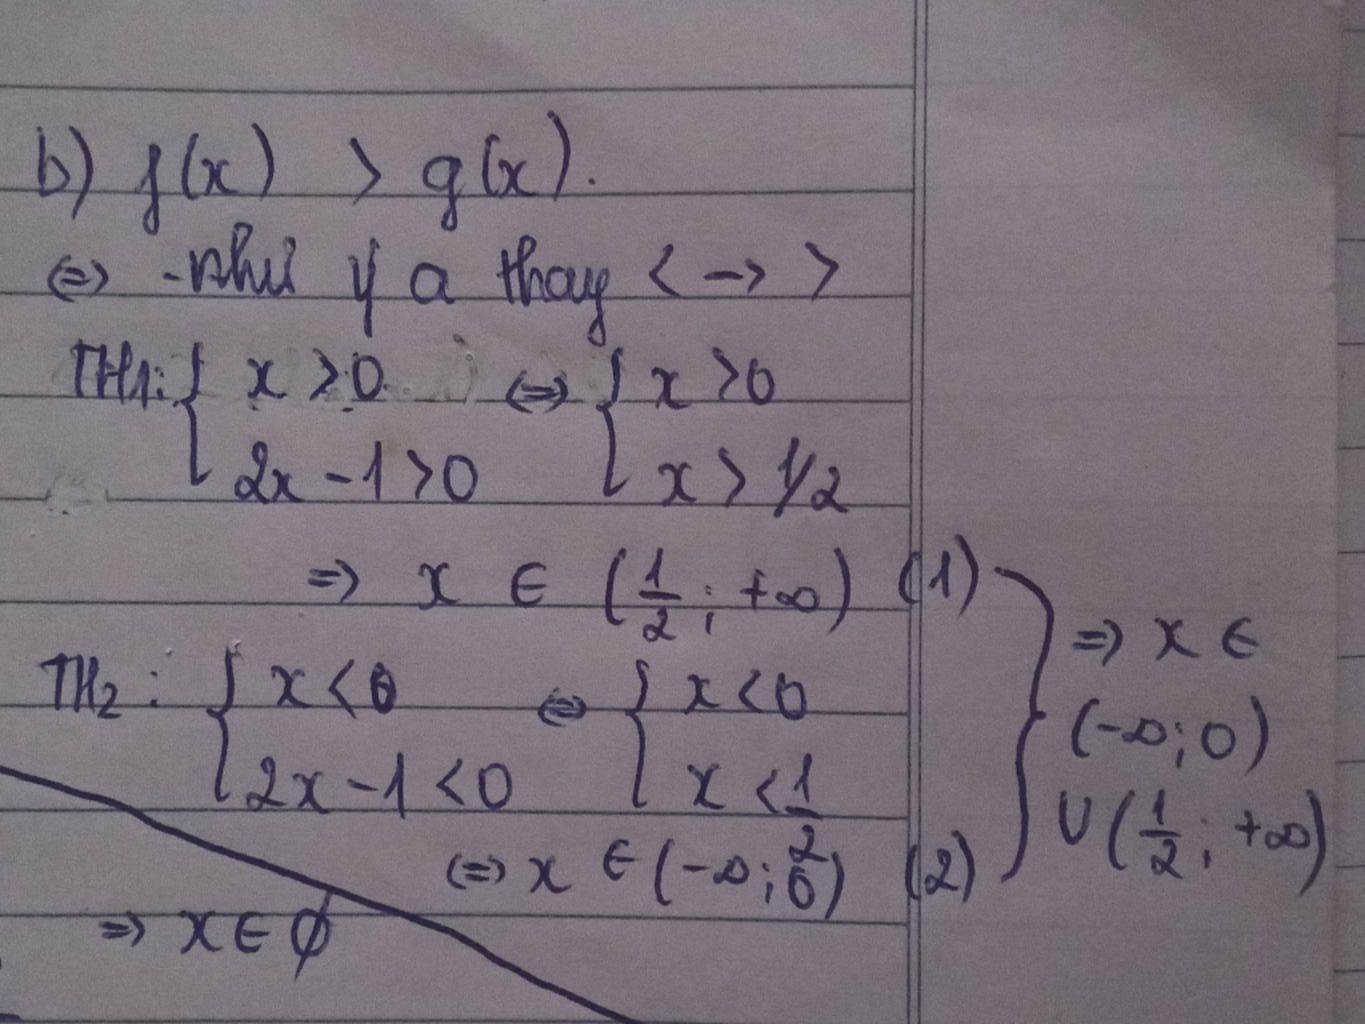 b) f(x) > g(x).
⇔ như ý a thay < → >
TH1: { x > 0 ⇔ { x > 0
2x - 1 > 0 x > 1/2
⇒ x ∈ (1/2 ; +∞) (1)
TH2 : { x < 0 ⇔ { x < 0
2x - 1 < 0 x < 1/2
⇔ x ∈ (-∞ ; 0) (2)
⇒ x ∈
(-∞ ; 0)
∪ (1/2 ; +∞)
⇒ x ∈ ∅